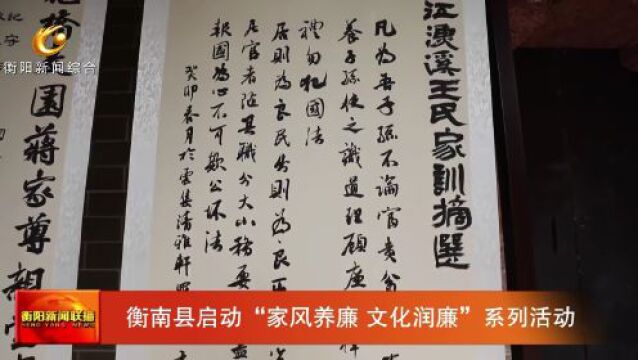 衡阳新闻综合
江溪王氏家訓摘選
凡為吾子孫不論富貴
養子孫使之識道理顧廉
禮勿犯國法
居則為良民出則為良
居官者隨其職分大小務要盡
報國為心不可欺公坏法
癸卯春月於雲集清雅軒
橋園蔣家尊親
衡阳新闻联播
HENG YANG XIN WEN LIAN BO
衡南县启动“家风养廉 文化润廉”系列活动